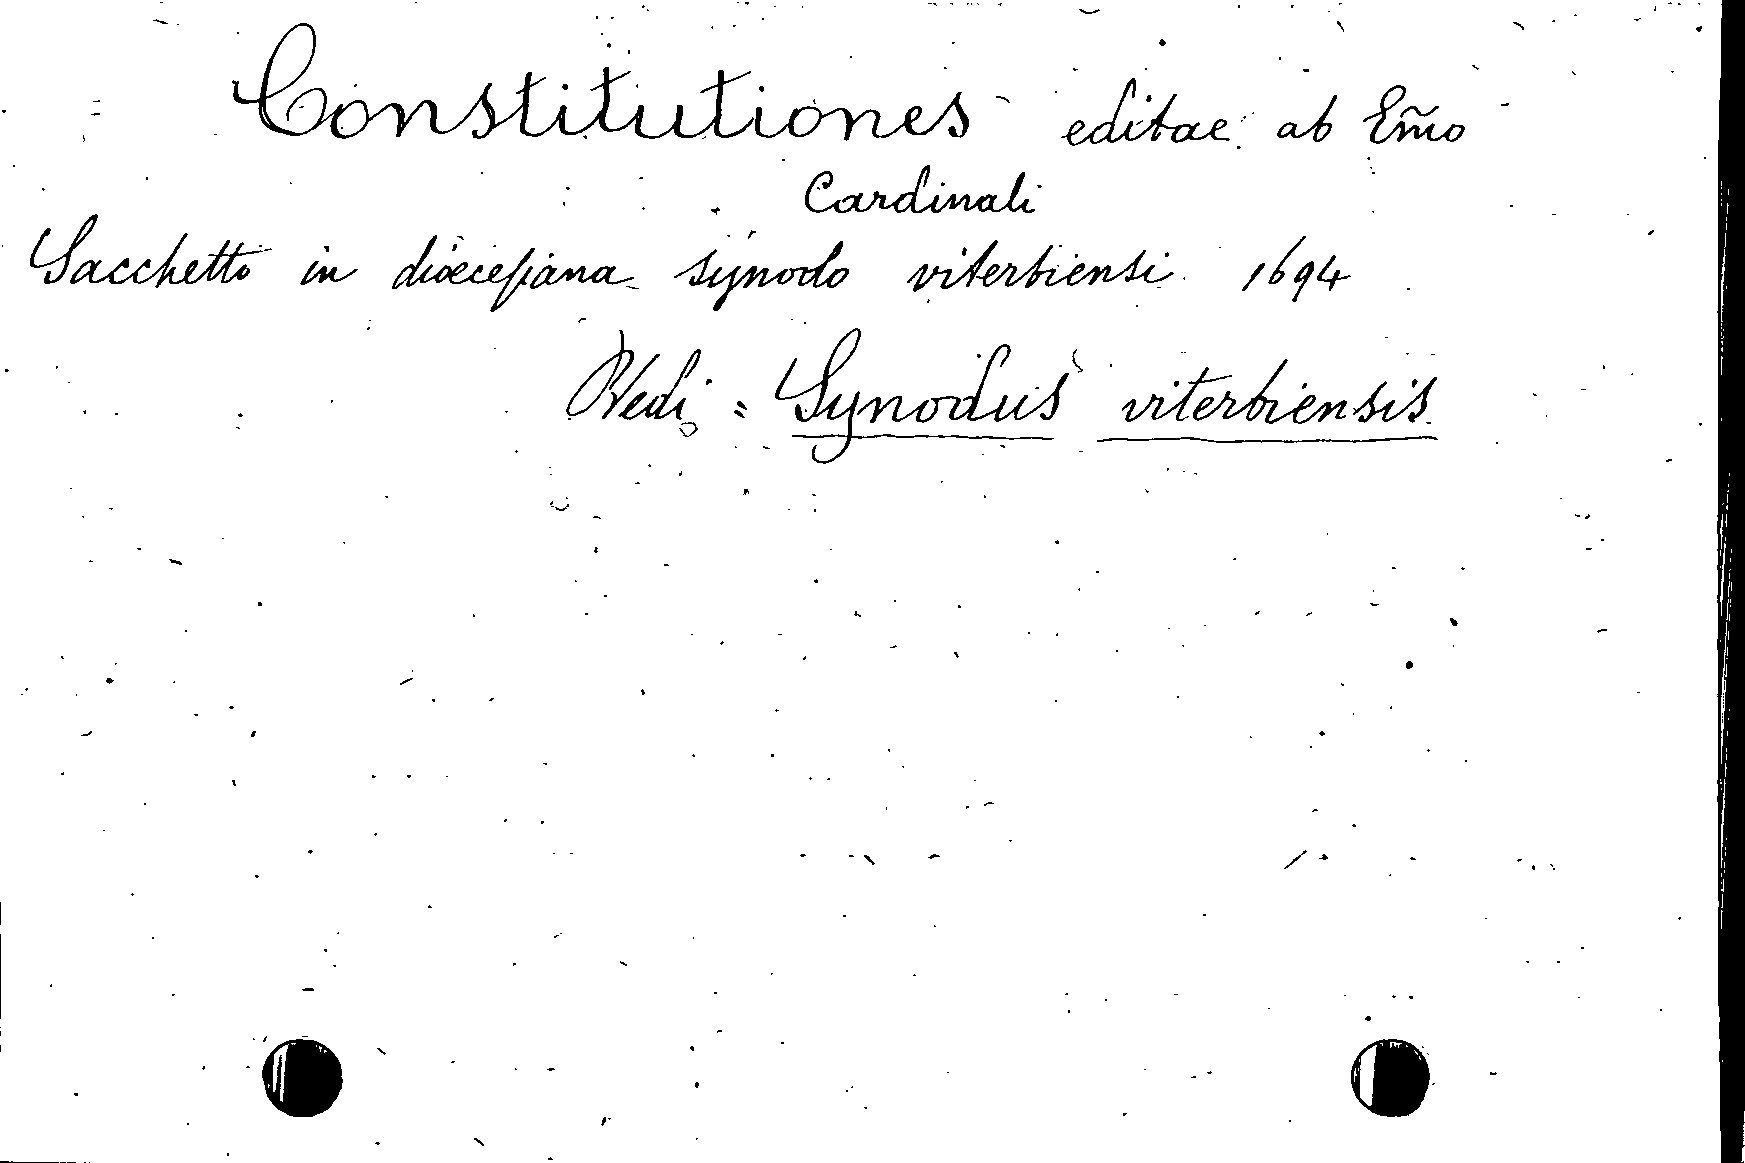 Constitutiones editae ab Em̃o
Cardinali
Sacchetto in diœcesiana synodo viterbiensi 1694
Vedi = Synodus viterbiensis